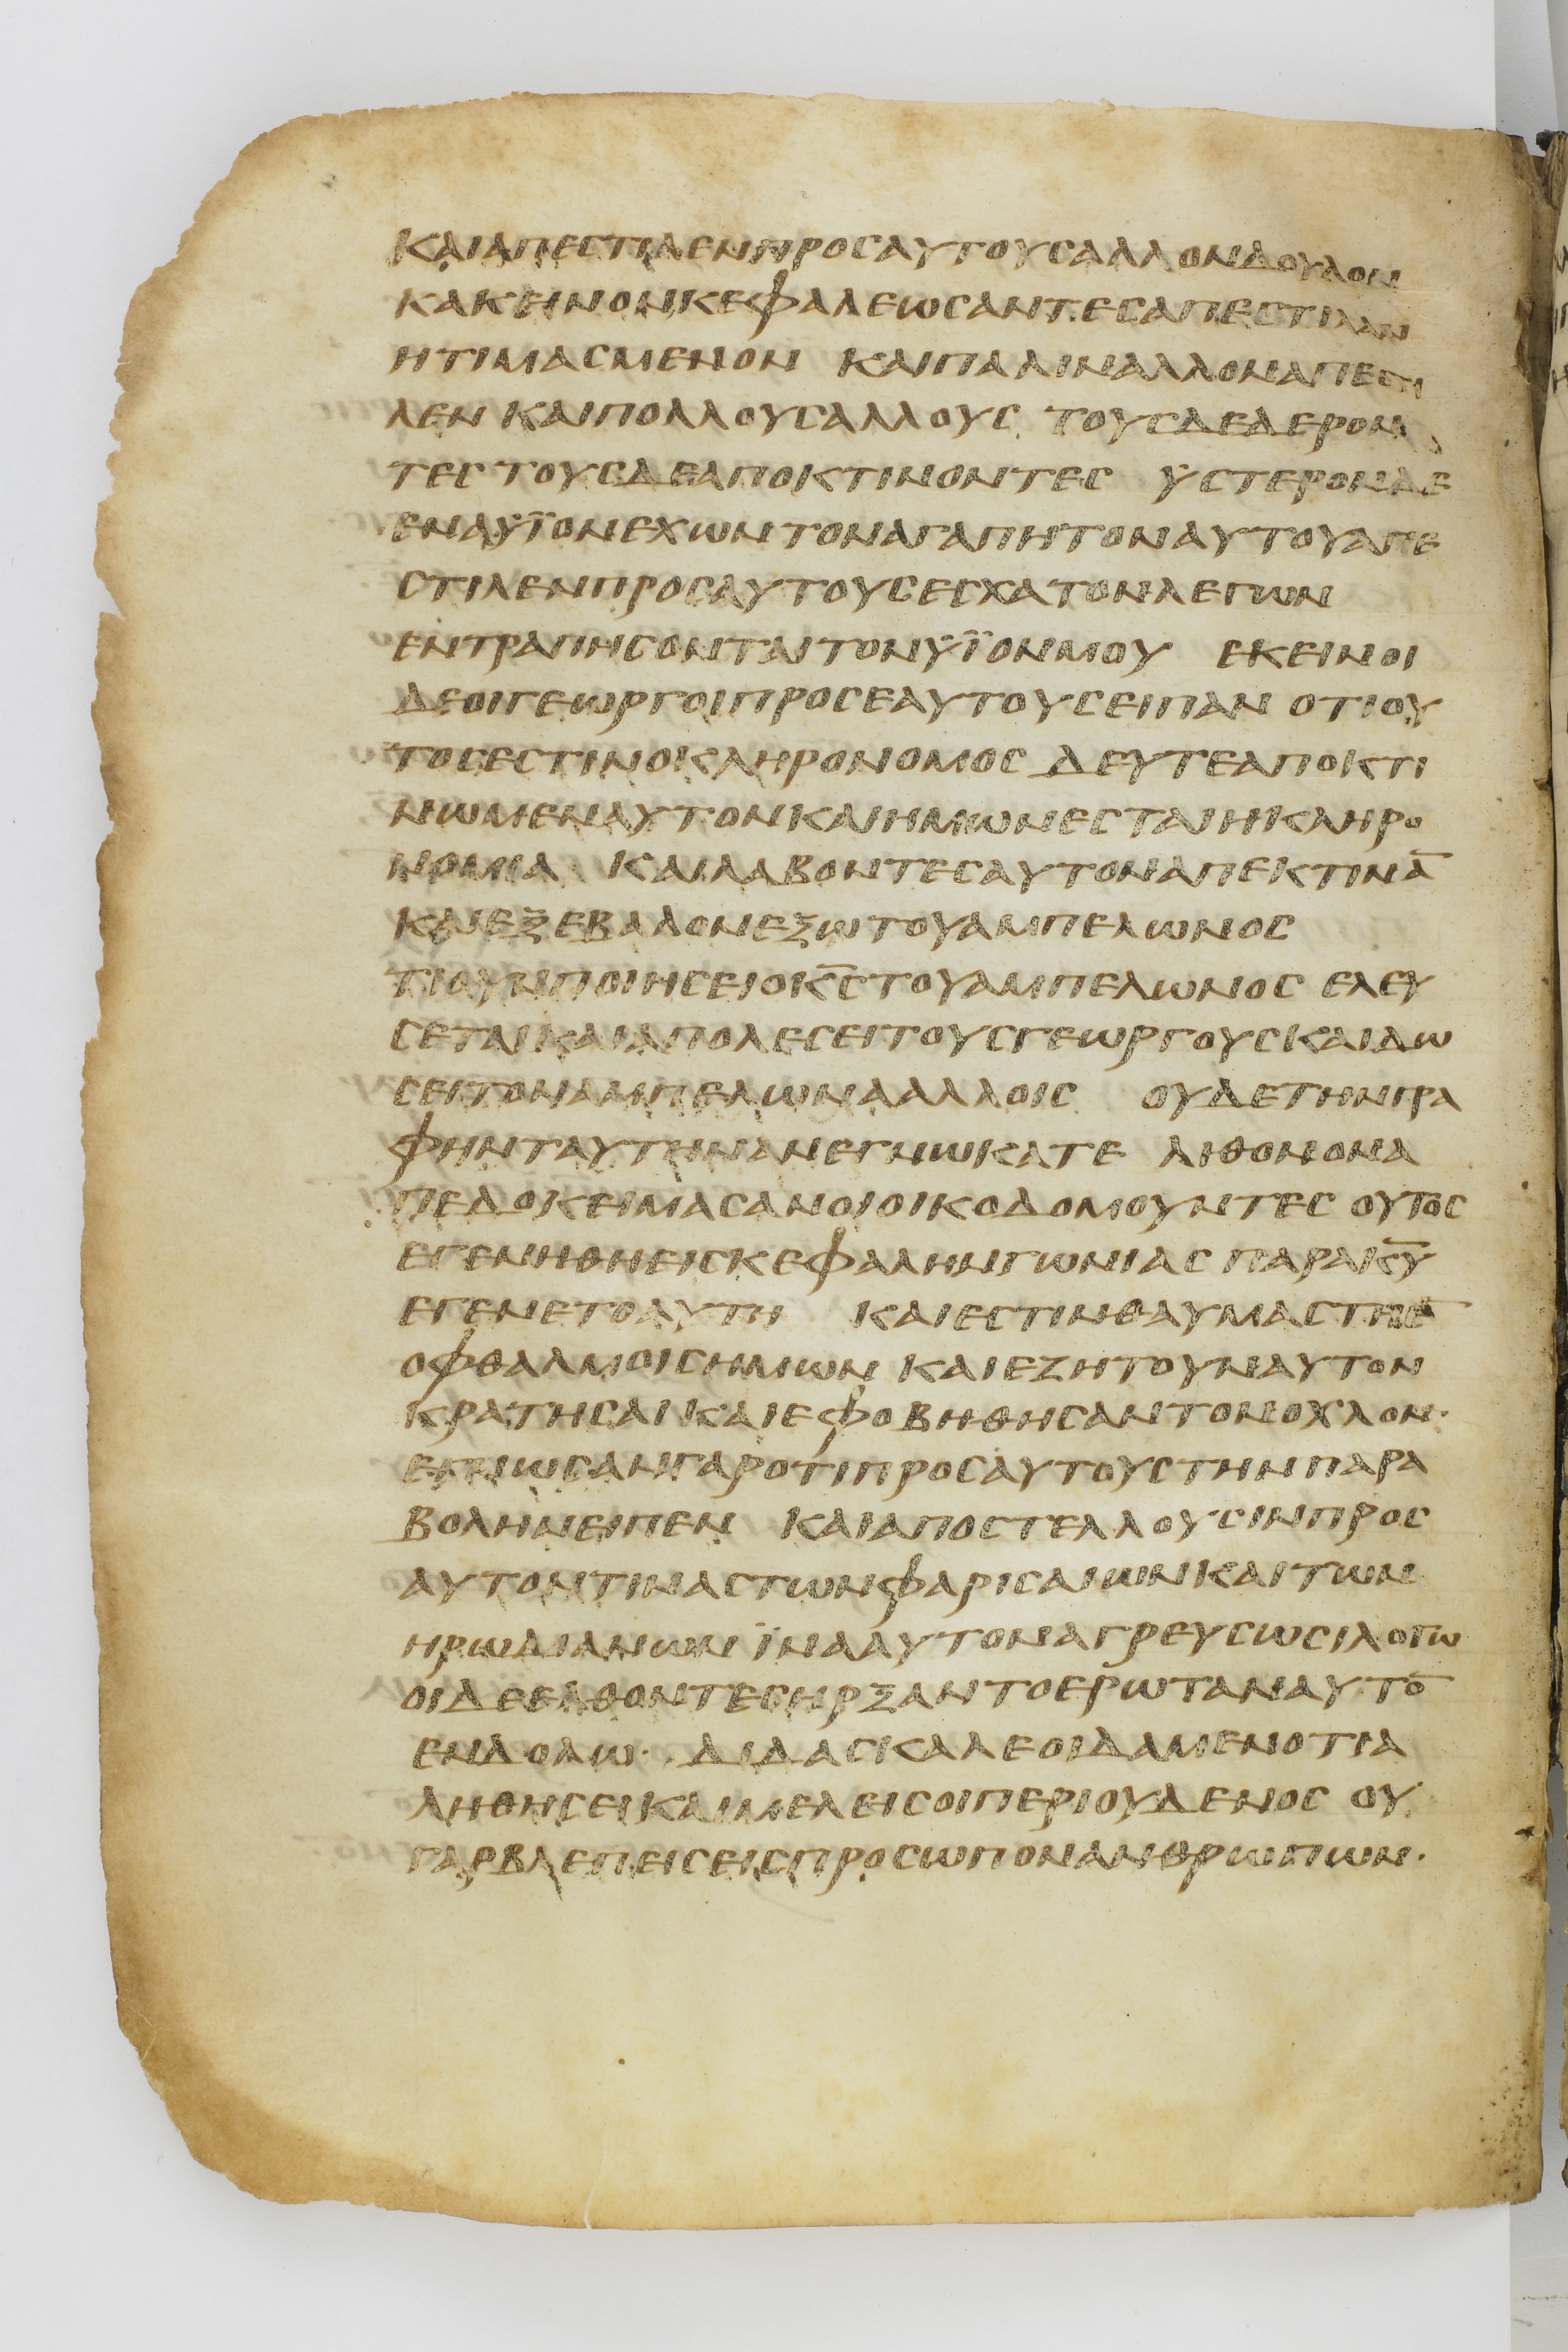 ΚΑΙΑΠΕCΤΙΛΕΝΠΡΟCΑΥΤΟΥCΑΛΛΟΝΔΟΥΛΟΝ
ΚΑΚΕΙΝΟΝΚΕΦΑΛΕWCΑΝΤΕCΑΠΕCΤΙΛΑΝ
ΗΤΙΜΑCΜΕΝΟΝ ΚΑΙΠΑΛΙΝΑΛΛΟΝΑΠΕCΤΙ
ΛΕΝ ΚΑΙΠΟΛΛΟΥCΑΛΛΟΥC ΤΟΥCΔΕΔΕΡΟΝ
ΤΕC ΤΟΥCΔΕΑΠΟΚΤΙΝΟΝΤΕC ΥCΤΕΡΟΝΔΕ
ΕΝΑΫΪΟΝΕΧWΝΤΟΝΑΓΑΠΗΤΟΝΑΥΤΟΥΑΠΕ
CΤΙΛΕΝΠΡΟCΑΥΤΟΥCΕCΧΑΤΟΝΛΕΓWΝ
ΕΝΤΡΑΠΗCΟΝΤΑΙΤΟΝΫΪΟΝΜΟΥ ΕΚΕΙΝΟΙ
ΔΕΟΙΓΕWΡΓΟΙΠΡΟCΕΑΥΤΟΥCΕΙΠΑΝ ΟΤΙΟΥ
ΤΟCΕCΤΙΝΟΚΛΗΡΟΝΟΜΟC ΔΕΥΤΕΑΠΟΚΤΙ
ΝWΜΕΝΑΥΤΟΝΚΑΙΗΜWΝΕCΤΑΙΗΚΛΗΡΟ
ΝΟΜΙΑ ΚΑΙΛΑΒΟΝΤΕCΑΥΤΟΝΑΠΕΚΤΙΝΑ̅
ΚΑΙΕΞΕΒΑΛΟΝΕΞWΤΟΥΑΜΠΕΛWΝΟC
ΤΙΟΥΝΠΟΙΗCΕΙΟΚ̅C̅ΤΟΥΑΜΠΕΛWΝΟC ΕΛΕΥ
CΕΤΑΙΚΑΙΑΠΟΛΕCΕΙΤΟΥCΓΕWΡΓΟΥCΚΑΙΔW
CΕΙΤΟΝΑΜΠΕΛWΝΑΑΛΛΟΙC ΟΥΔΕΤΗΝΓΡΑ
ΦΗΝΤΑΥΤΗΝΑΝΕΓΝWΚΑΤΕ ΛΙΘΟΝΟΝΑ
ΠΕΔΟΚΕΙΜΑCΑΝΟΙΟΙΚΟΔΟΜΟΥΝΤΕC ΟΥΤΟC
ΕΓΕΝΗΘΗΕΙCΚΕΦΑΛΗΝΓWΝΙΑC ΠΑΡΑΚ̅Υ̅
ΕΓΕΝΕΤΟΑΥΤΗ ΚΑΙΕCΤΙΝΘΑΥΜΑCΤΗΕ̅
ΟΦΘΑΛΜΟΙCΗΜWΝ ΚΑΙΕΖΗΤΟΥΝΑΥΤΟΝ
ΚΡΑΤΗCΑΙΚΑΙΕΦΟΒΗΘΗCΑΝΤΟΝΟΧΛΟΝ·
ΕΓΝWCΑΝΓΑΡΟΤΙΠΡΟCΑΥΤΟΥCΤΗΝΠΑΡΑ
ΒΟΛΗΝΕΙΠΕΝ ΚΑΙΑΠΟCΤΕΛΛΟΥCΙΝΠΡΟC
ΑΥΤΟΝΤΙΝΑCΤWΝΦΑΡΙCΑΙWΝΚΑΙΤWΝ
ΗΡWΔΙΑΝWΝΪΝΑΑΥΤΟΝΑΓΡΕΥCWCΙΛΟΓW
ΟΙΔΕΕΛΘΟΝΤΕCΗΡΞΑΝΤΟΕΡWΤΑΝΑΥΤΟ̅
ΕΝΔΟΛW· ΔΙΔΑCΚΑΛΕΟΙΔΑΜΕΝΟΤΙΑ
ΛΗΘΗCΕΙΚΑΙΜΕΛΕΙCΟΙΠΕΡΙΟΥΔΕΝΟC ΟΥ
ΓΑΡΒΛΕΠΕΙCΕΙCΠΡΟCWΠΟΝΑΝΘΡWΠWΝ·